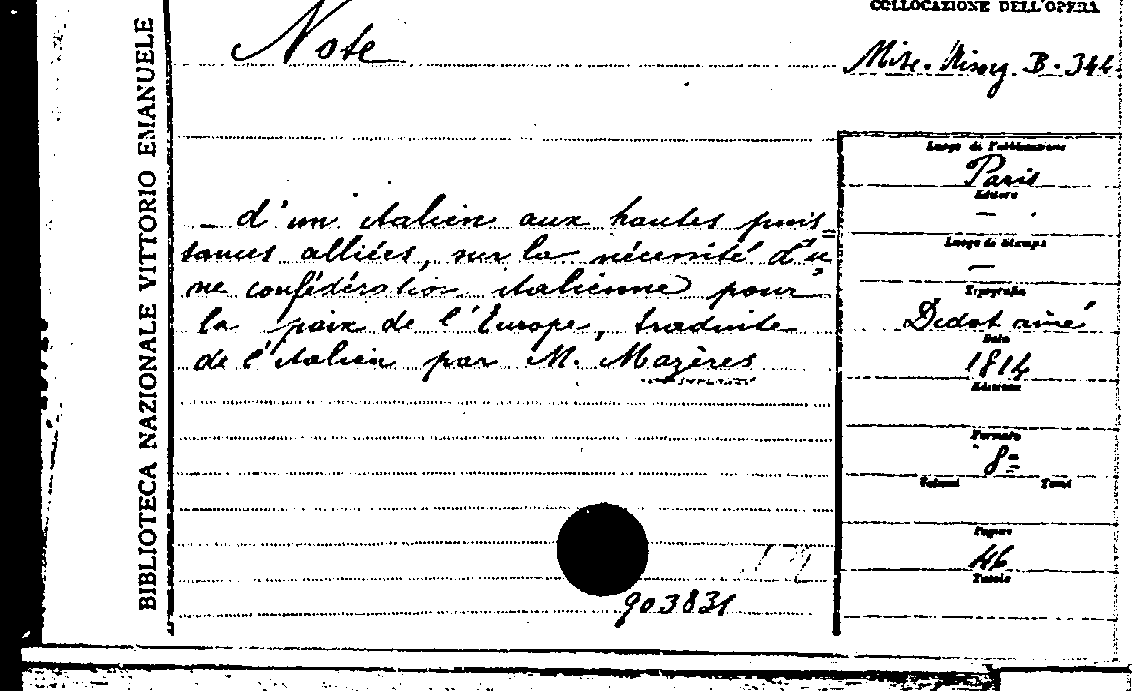 COLLOCAZIONE DELL'OPERA
Note
Misc. Risorg. B. 344
BIBLIOTECA NAZIONALE VITTORIO EMANUELE
_ d'un italien aux hautes puis=
sances alliées, sur la nécessité d'u=
ne confédération italienne pour
la paix de l'Europe, traduite
de l'italien par M. Mazères
Luogo di Pubblicazione
Paris
Editore
—
Luogo di Stampa
—
Tipografia
Didot aîné
Data
1814
Edizione
Formato
8=
Volumi Tomi
Pagine
46
Tavole
903831